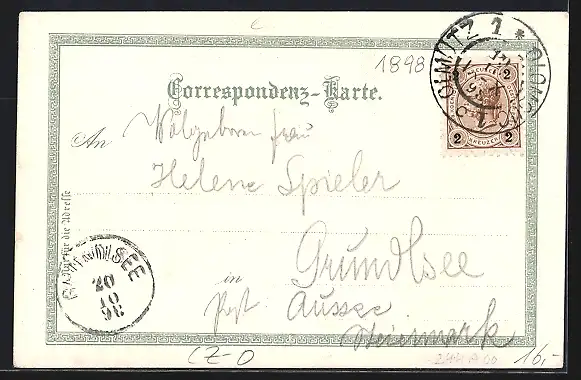 1898
OLMÜTZ 1 * OLOMOUC 1
2 2
2 KREUZER 2
Correspondenz-Karte.
An Wolgeboren Frau
Helene Spieler
Grundlsee
in
Post Aussee
Steiermark
Raum für die Adresse
GRUNDLSEE
20
10
98
CZ-O
16,-